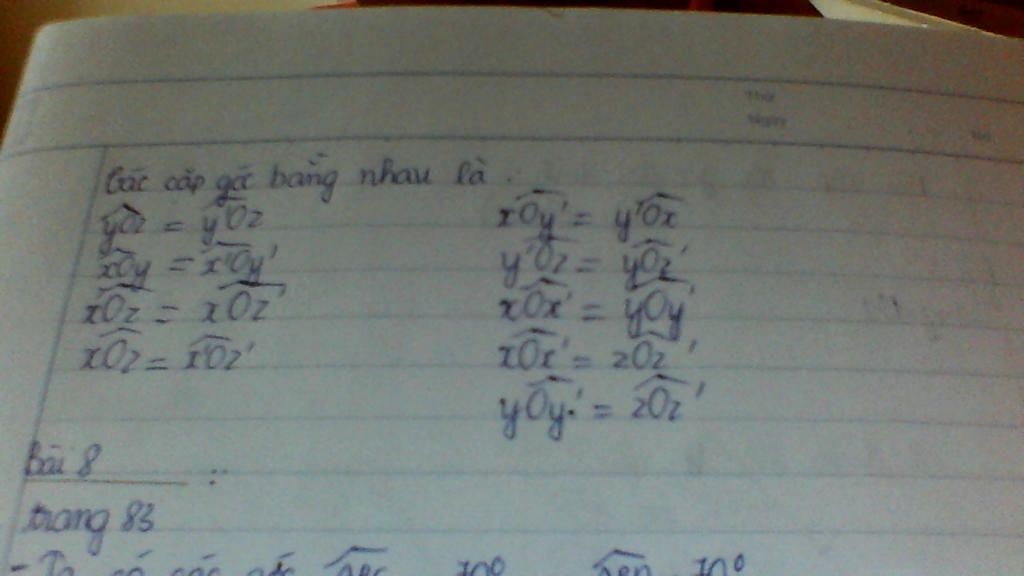 Thứ
Ngày
Các cặp góc bằng nhau là .
yOz = y'Oz
xOy = x'Oy'
xOz = xOz'
xOz = x'Oz'
xOy' = y'Ox
y'Oz = yOz'
xOx' = yOy'
xOx' = zOz'
yOy' = zOz'
Bài 8 :
trang 83
- Ta có các góc 70° 70°